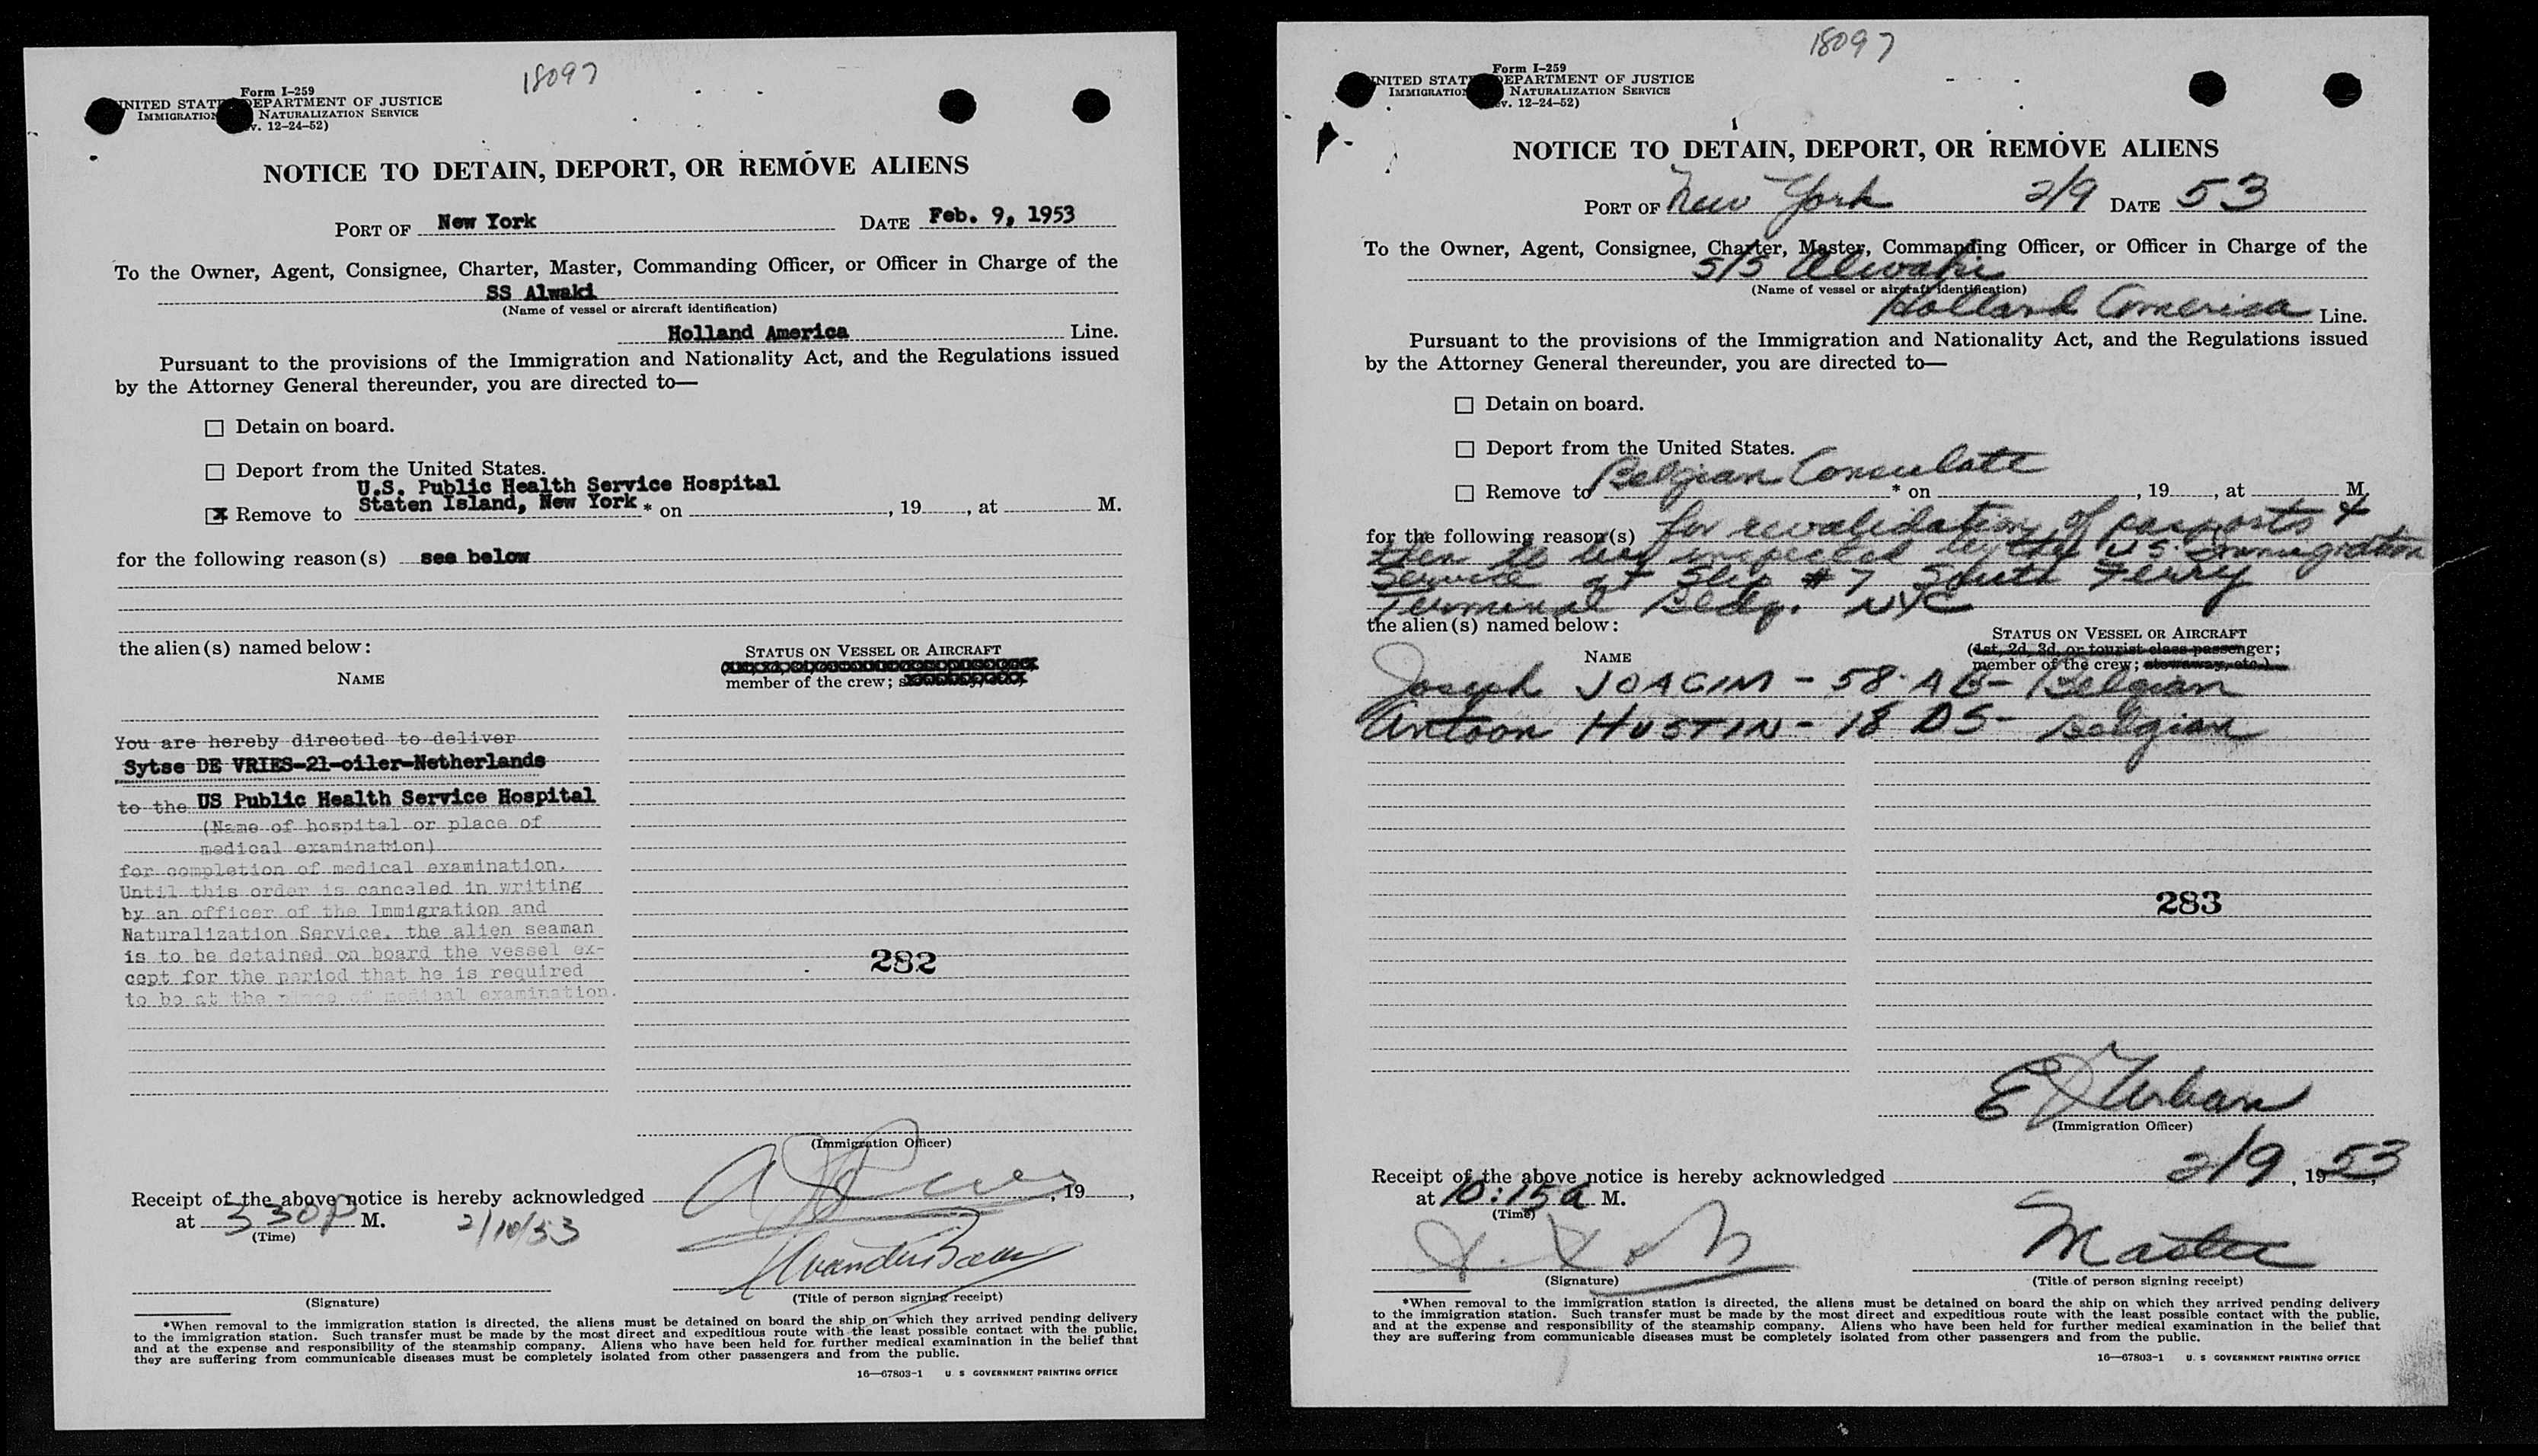 18097
Form I-259
UNITED STAT DEPARTMENT OF JUSTICE
IMMIGRATION NATURALIZATION SERVICE
v. 12-24-52)
NOTICE TO DETAIN, DEPORT, OR REMOVE ALIENS
PORT OF New York DATE Feb. 9, 1953
To the Owner, Agent, Consignee, Charter, Master, Commanding Officer, or Officer in Charge of the
SS Alwaki
(Name of vessel or aircraft identification)
Holland America Line.
Pursuant to the provisions of the Immigration and Nationality Act, and the Regulations issued
by the Attorney General thereunder, you are directed to—
☐ Detain on board.
☐ Deport from the United States.
U.S. Public Health Service Hospital
☒ Remove to Staten Island, New York * on , 19 , at M.
for the following reason(s) see below
the alien(s) named below:
STATUS ON VESSEL OR AIRCRAFT
member of the crew;
NAME
You are hereby directed to deliver
Sytse DE VRIES-21-oiler-Netherlands
to the US Public Health Service Hospital
(Name of hospital or place of
medical examination)
for completion of medical examination.
Until this order is canceled in writing
by an officer of the Immigration and
Naturalization Service, the alien seaman
is to be detained on board the vessel ex-
cept for the period that he is required
to be at the place of medical examination.
282
(Immigration Officer)
Receipt of the above notice is hereby acknowledged , 19 ,
at 330P M. 2/10/53
(Time)
(Signature)
(Title of person signing receipt)
*When removal to the immigration station is directed, the aliens must be detained on board the ship on which they arrived pending delivery
to the immigration station. Such transfer must be made by the most direct and expeditious route with the least possible contact with the public,
and at the expense and responsibility of the steamship company. Aliens who have been held for further medical examination in the belief that
they are suffering from communicable diseases must be completely isolated from other passengers and from the public.
16—67803-1 U. S GOVERNMENT PRINTING OFFICE
18097
Form I-259
UNITED STAT DEPARTMENT OF JUSTICE
IMMIGRATION NATURALIZATION SERVICE
ev. 12-24-52)
NOTICE TO DETAIN, DEPORT, OR REMOVE ALIENS
PORT OF New York 2/9 DATE 53
To the Owner, Agent, Consignee, Charter, Master, Commanding Officer, or Officer in Charge of the
S/S Alwaki
(Name of vessel or aircraft identification)
Holland America Line.
Pursuant to the provisions of the Immigration and Nationality Act, and the Regulations issued
by the Attorney General thereunder, you are directed to—
☐ Detain on board.
☐ Deport from the United States.
☐ Remove to Belgian Consulate * on , 19 , at M.
for the following reason(s) for revalidation of passports &
then to be inspected by the U.S. Immigration
Service at Slip #7 South Ferry
Terminal Bldg. NYC
the alien(s) named below:
STATUS ON VESSEL OR AIRCRAFT
NAME
(1st, 2d, 3d, or tourist class passenger;
member of the crew; stowaway, etc.)
Joseph JOACIM - 58 - AB - Belgian
Antoon HUSTIN - 18 DS - Belgian
283
E Urban
(Immigration Officer)
Receipt of the above notice is hereby acknowledged 2/9, 1953,
at 10:15 a M.
(Time)
Master
(Signature)
(Title of person signing receipt)
*When removal to the immigration station is directed, the aliens must be detained on board the ship on which they arrived pending delivery
to the immigration station. Such transfer must be made by the most direct and expeditious route with the least possible contact with the public,
and at the expense and responsibility of the steamship company. Aliens who have been held for further medical examination in the belief that
they are suffering from communicable diseases must be completely isolated from other passengers and from the public.
16—67803-1 U. S GOVERNMENT PRINTING OFFICE